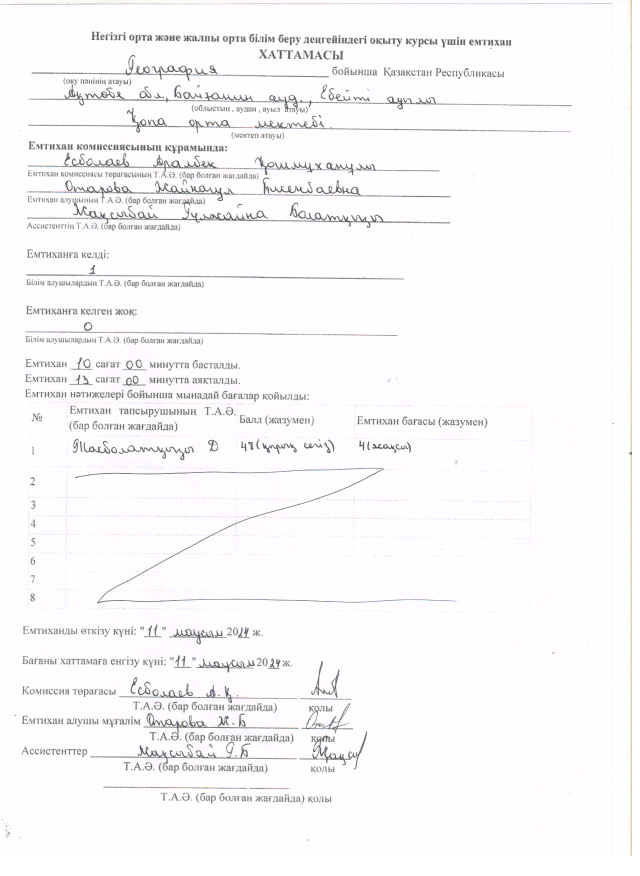 Негізгі орта және жалпы орта білім беру деңгейіндегі оқыту курсы үшін емтихан
ХАТТАМАСЫ
География бойынша Қазақстан Республикасы
(оқу пәнінің атауы)
Ақтөбе обл, Байғанин ауд., Ебейті ауылы
(облыстың , аудан , ауыл атауы)
Қопа орта мектебі.
(мектеп атауы)
Емтихан комиссиясының құрамында:
Есболаев Аралбек Қошмуханұлы
Емтихан комиссиясы төрағасының Т.А.Ә. (бар болған жағдайда)
Отарова Жайнагул Бисенбаевна
Емтихан алушының Т.А.Ә. (бар болған жағдайда)
Мақсыбай Гүлжайна Болатқызы
Ассистенттің Т.А.Ә. (бар болған жағдайда)
Емтиханға келді:
1
Білім алушылардың Т.А.Ә. (бар болған жағдайда)
Емтиханға келген жоқ:
0
Білім алушылардың Т.А.Ә. (бар болған жағдайда)
Емтихан 10 сағат 00 минутта басталды.
Емтихан 13 сағат 00 минутта аяқталды.
Емтихан нәтижелері бойынша мынадай бағалар қойылды:
№ Емтихан тапсырушының Т.А.Ә. (бар болған жағдайда) Балл (жазумен) Емтихан бағасы (жазумен)
1 Тасболатқызы Д 48 (қырық сегіз) 4 (жақсы)
2
3
4
5
6
7
8
Емтиханды өткізу күні: "11" маусым 2024 ж.
Бағаны хаттамаға енгізу күні: "11" маусым 2024 ж.
Комиссия төрағасы Есболаев А.Қ.
Т.А.Ә. (бар болған жағдайда) қолы
Емтихан алушы мұғалім Отарова Ж.Б
Т.А.Ә. (бар болған жағдайда) қолы
Ассистенттер Мақсыбай Г.Б
Т.А.Ә. (бар болған жағдайда) қолы
Т.А.Ә. (бар болған жағдайда) қолы